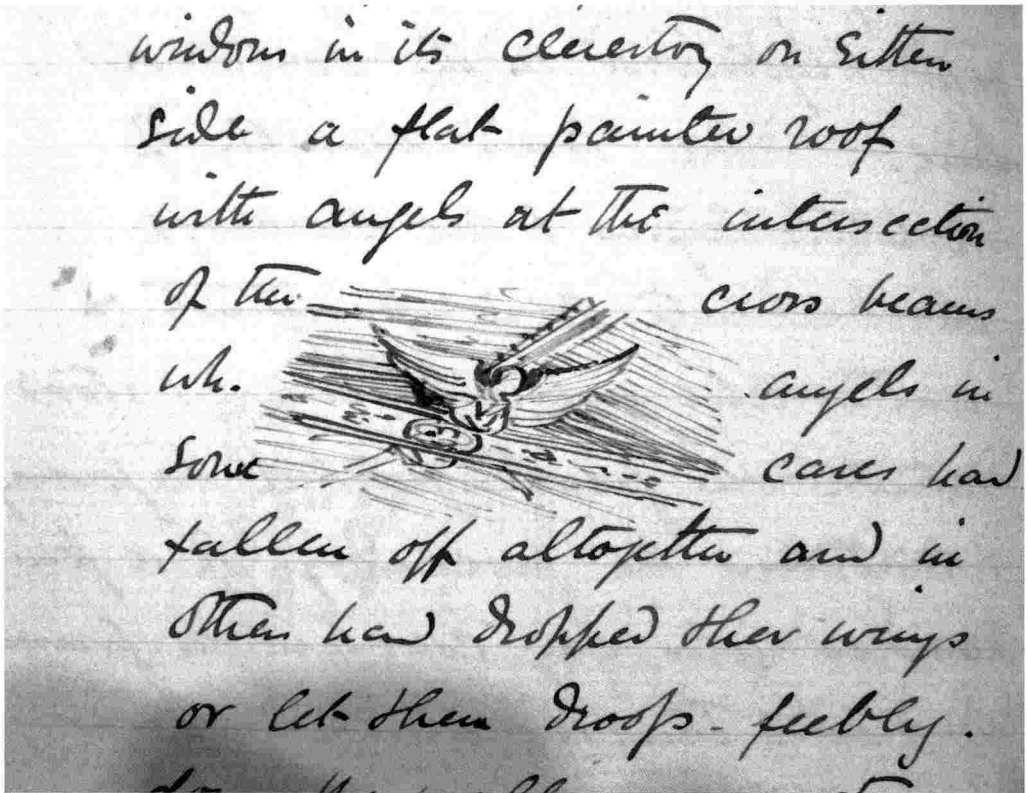 windows in its clerestory on Either
side a flat painted roof
with angels at the intersection
of the cross beams
wh. angels in
some cases had
fallen off altogether and in
others had dropped their wings
or let them droop - feebly.